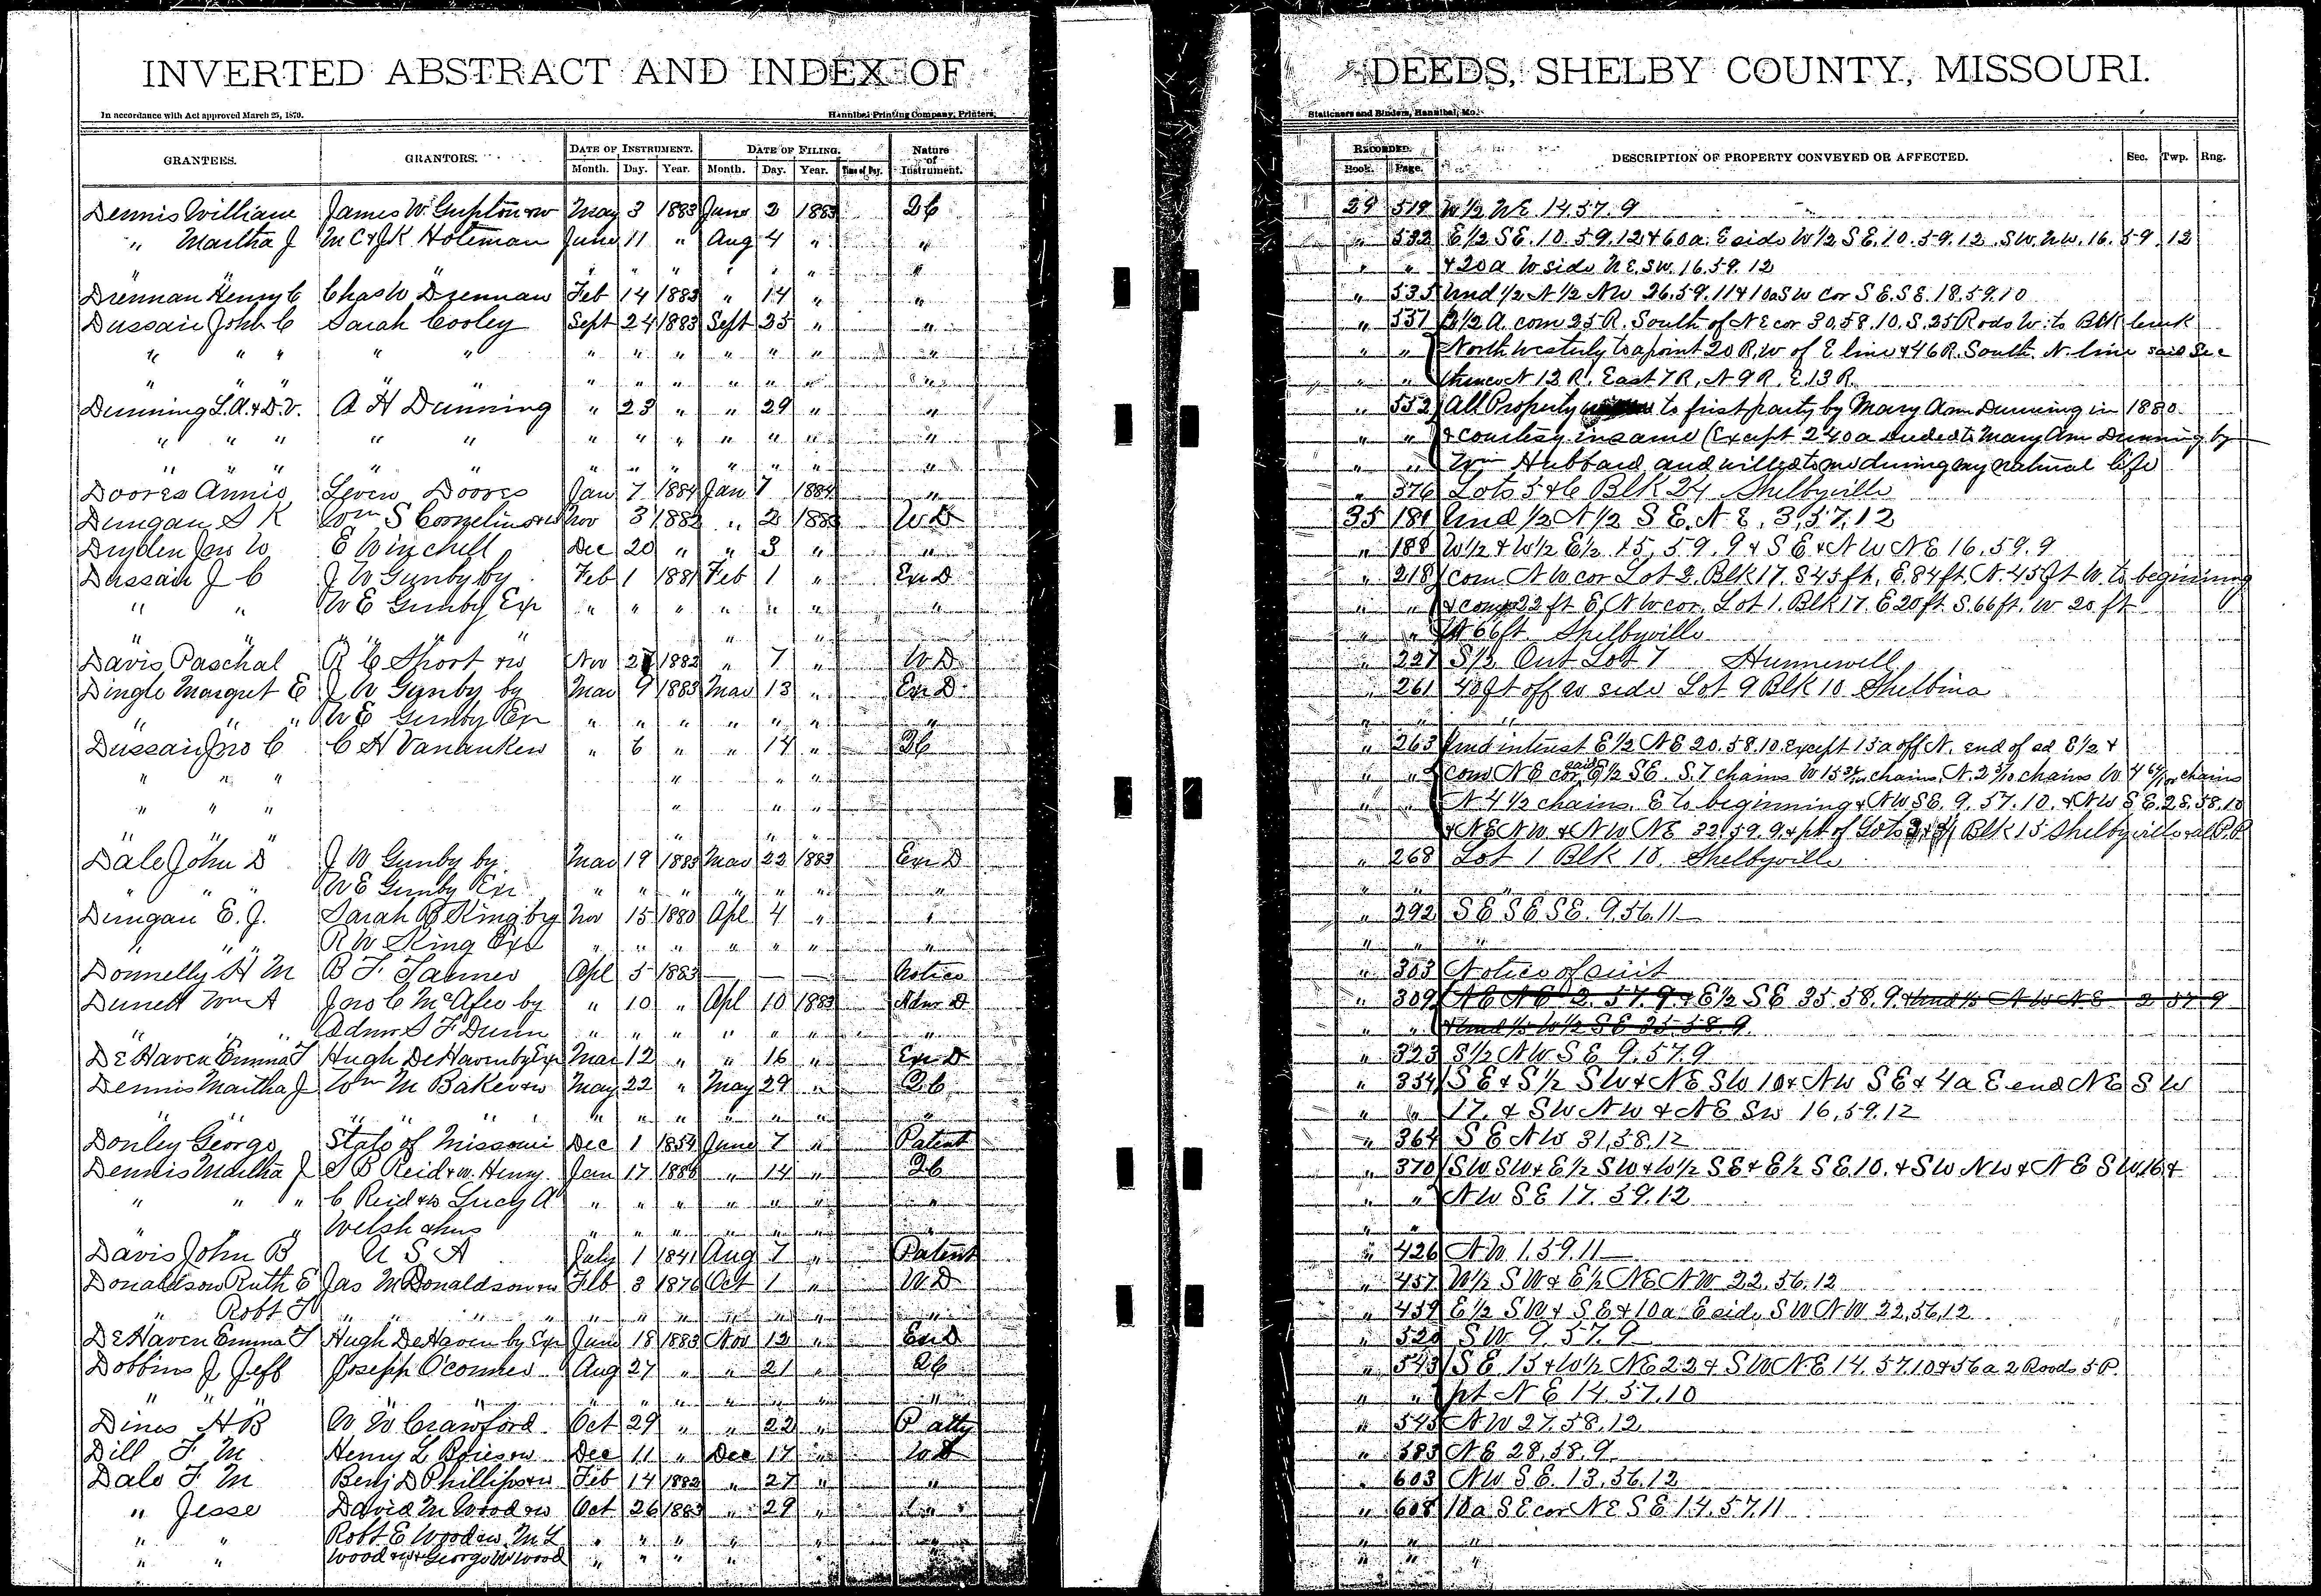 INVERTED ABSTRACT AND INDEX OF DEEDS, SHELBY COUNTY, MISSOURI.
In accordance with Act approved March 25, 1870. Hannibal Printing Company, Printers, Stationers and Binders, Hannibal, Mo.
GRANTEES. GRANTORS. DATE OF INSTRUMENT. DATE OF FILING. Nature of Instrument. RECORDED. DESCRIPTION OF PROPERTY CONVEYED OR AFFECTED. Sec. Twp. Rng.
Month. Day. Year. Month. Day. Year. Time of Day. Book. Page.
Dennis William James W. Gupton & w May 3 1883 June 2 1883 2C 29 519 W 1/2 NE. 14.57.9
" Martha J M C & J K Holeman June 11 " Aug 4 " " " 532 E 1/2 SE. 10.59.12 & 60 a. E side W 1/2 SE. 10.59.12. SW. NW. 16. 59 12
" " " " " " " " & 20 a W side NE. SW. 16.59.12
Drennan Henry C Chas W Drennan Feb 14 1883 " 14 " " " 535 Und 1/2 N 1/2 NW 26.59.11 & 10a SW cor SE. SE. 18.59.10
Dussair John C Sarah Cooley Sept 24 1883 Sept 25 " " " 551 2 1/2 A. com 25 R. South of NE cor 30.58.10. S. 25 Rods W. to Blk
" " " " " " " " " " " " " " " North Westerly to a point 20 R. W of E line & 46 R. South N. line said Sec
" " " " " " " " " " " " " " thence N 12 R. East 7 R, N 9 R. E. 13 R.
Dunning L. A. & D. V. A H Dunning " 23 " " 29 " " " 552 All Property to first party by Mary Ann Dunning in 1880
" " " " " " " " " " " " " " & courtesy in same (Except 240 a deeded to Mary Ann Dunning by
" " " " " " " " " " " " " " Wm Hubbard and willed to me during my natural life
Doores Annie Leven Doores Jan 7 1884 Jan 7 1884 " " 576 Lots 5 & 6 Blk 24 Shelbyville
Dungan S K Wm S Cornelius & w Nov 3 1882 " 2 1883 W D 35 181 Und 1/2 N 1/2 SE. NE. 3.57.12
Dryden Jno W E Winchell Dec 20 " " 3 " " " 188 W 1/2 & W 1/2 E 1/2 15.59.9 & SE & NW NE 16.59.9
Dussair J C J W Gunby by Feb 1 1881 Feb 1 " Exr D " 218 Com. NW cor Lot 2. Blk 17. S 45 ft, E. 84 ft. N. 45 ft W. to beginning
" " W E Gunby Exr " " " " " " " " " & com 22 ft E, NW cor. Lot 1. Blk 17. E 20 ft S. 66 ft. W 20 ft
" " " " " " " " N 66 ft Shelbyville
Davis Paschal R C Short & w Nov 27 1882 " 7 " W D " 227 S 1/2 Out Lot 7 Hunnewell
Dingle Margret E J W Gunby by Mar 9 1883 Mar 13 " Exr D " 261 40 ft off W side Lot 9 Blk 10 Shelbina
" " " W E Gunby Exr " " " " " " " " "
Dussair Jno C C H Vanauken " 6 " " 14 " 2C " 263 Und interest E 1/2 NE 20.58.10. Except 15 a off N. end of sd E 1/2 &
" " " " " " " " com NE cor. said E 1/2 SE. S. 7 chains W 15 chains, N. 2 5/10 chains W. 4 chains
" " " " " " " " N. 4 1/2 chains. E to beginning & NW SE. 9.57.10. & NW SE. 28.58.10
" " " " " " & NE NW. & NW NE 32.59.9. & pt of Lots Blk 15 Shelbyville
Dale John D J W Gunby by Mar 19 1883 Mar 22 1883 Exr D " 268 Lot 1 Blk 18. Shelbyville
W E Gunby Exr " " " " " " " " "
Dungan E. J. Sarah B King by Nov 15 1880 Apl 4 " " " 292 SE SE SE. 9.56.11
" " " R W King Exr " " " " " " " " "
Donnelly H M B F Tanner Apl 5 1883 — — — Notice " 303 Notice of suit
Wm A Jno C McAfee by " 10 " Apl 10 1883 Admr D " 309 NE NE 2.57.9 & E 1/2 SE 35.58.9. & Und 1/3 NW NE 2 57 9
" " Admr S F Dunn " " " " " " " " " & Und 1/3 W 1/2 SE 35 58 9.
DeHaven Emma T Hugh DeHaven by Exr Mar 12 " " 16 " Exr D " 323 S 1/2 NW SE 9.57.9
Dennis Martha J Wm M Baker & w May 22 " May 29 " 2C " 354 SE & S 1/2 SW & NE SW 10 & NW SE & 4 a E end NE SW
" " " " " " " " " " " " " 17. & SW NW & NE SW 16.59.12
Donley George State of Missouri Dec 1 1854 June 7 " Patent " 364 SE NW 31.58.12
Dennis Martha J S B Reid & w. Henry Jan 17 1886 " 14 " 2C " 370 SW. SW & E 1/2 SW & W 1/2 SE & E 1/2 SE. 10. & SW NW & NE SW. 16 &
" " " C Reid & w Lucy A " " " " " " " " " NW SE 17.59.12
" " Welsh " " " " " " " "
Davis John B U S A July 1 1841 Aug 7 " Patent " 426 NW 1.59.11
Donaldson Ruth E Jas M Donaldson & w Feb 3 1876 Oct 1 " W D " 457 W 1/2 SW & E 1/2 NE NW 22.56.12
" Robt F " " " " " " " " " " " 459 E 1/2 SW & SE & 10 a E side SW NW 22.56.12
DeHaven Emma T Hugh DeHaven by Exr June 18 1883 Nov 12 " Exr D " 520 SW 9.57.9
Dobbins J Jeff Joseph O'conner Aug 27 " " 21 " 2C " 543 SE. 15 & W 1/2 NE 22 & SW NE 14.57.10 & 56 a 2 Roods 5 P.
" " " " " " " " " " " " " pt NE 14.57.10
Dines H B W W Crawford Oct 29 " " 22 " P atty " 545 NW 27.58.12
Dill F. M Henry L & w Dec 11 " Dec 17 " W D " 583 NE 28.58.9
Dale F. M Benj D Phillips & w Feb 14 1882 " 27 " " " 603 NW SE. 13.56.12
" Jesse David M Wood & w Oct 26 1883 " 29 " " " 608 10 a SE cor NE SE 14.57.11
" " Robt E Wood & w M L " " " " " "
" " Wood & w & George W Wood " " " " " "